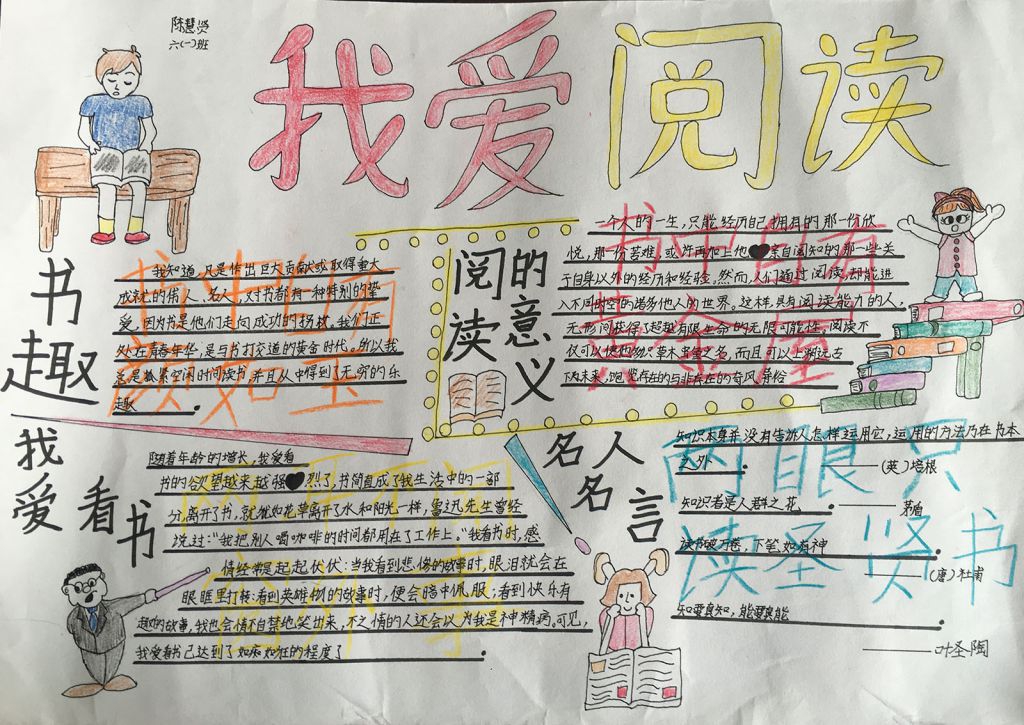 陈慧贤
六(一)班
我爱阅读
书趣
我知道,凡是作出巨大贡献或取得重大
成就的伟人、名人,对书都有一种特别的挚
爱,因为书是他们走向成功的拐杖。我们正
处在青春年华,是与书打交道的黄金时代。所以我
总是抓紧空闲时间读书,并且从中得到了无穷的乐
趣。
书中自有
颜如玉
阅读的意义
一个人的一生,只能经历自己拥有的那一份欣
悦,那一份苦难,或许再加上他亲自闻知的那一些关
于自身以外的经历和经验。然而,人们通过阅读,却能进
入不同时空的诸多他人的世界。这样,具有阅读能力的人,
无形间获得了超越有限生命的无限可能性。阅读不
仅可以使他多识草木虫鱼之名,而且可以上溯远古
下及未来,饱览存在的与非存在的奇风异俗
书中自有
黄金屋
我爱看书
随着年龄的增长,我爱看
书的欲望越来越强烈了,书简直成了我生活中的一部
分,离开了书,就犹如花草离开了水和阳光一样,鲁迅先生曾经
说过:“我把别人喝咖啡的时间都用在了工作上。”我看书时,感
情经常是起起伏伏:当我看到悲伤的故事时,眼泪就会在
眼眶里打转;看到英雄人物的故事时,便会暗中佩服;看到快乐有
趣的故事,我也会情不自禁地笑出来,不知情的人还会以为我是神精病。可见,
我爱看书已达到了如痴如狂的程度了。
两耳不闻
窗外事
名人名言
知识本身并没有告诉人怎样运用它,运用的方法乃在书本
之外。
——(英)培根
知识者是人群之花。
——茅盾
读书破万卷,下笔如有神。
——(唐)杜甫
知要真知,能要真能。
——叶圣陶
两眼只
读圣贤书